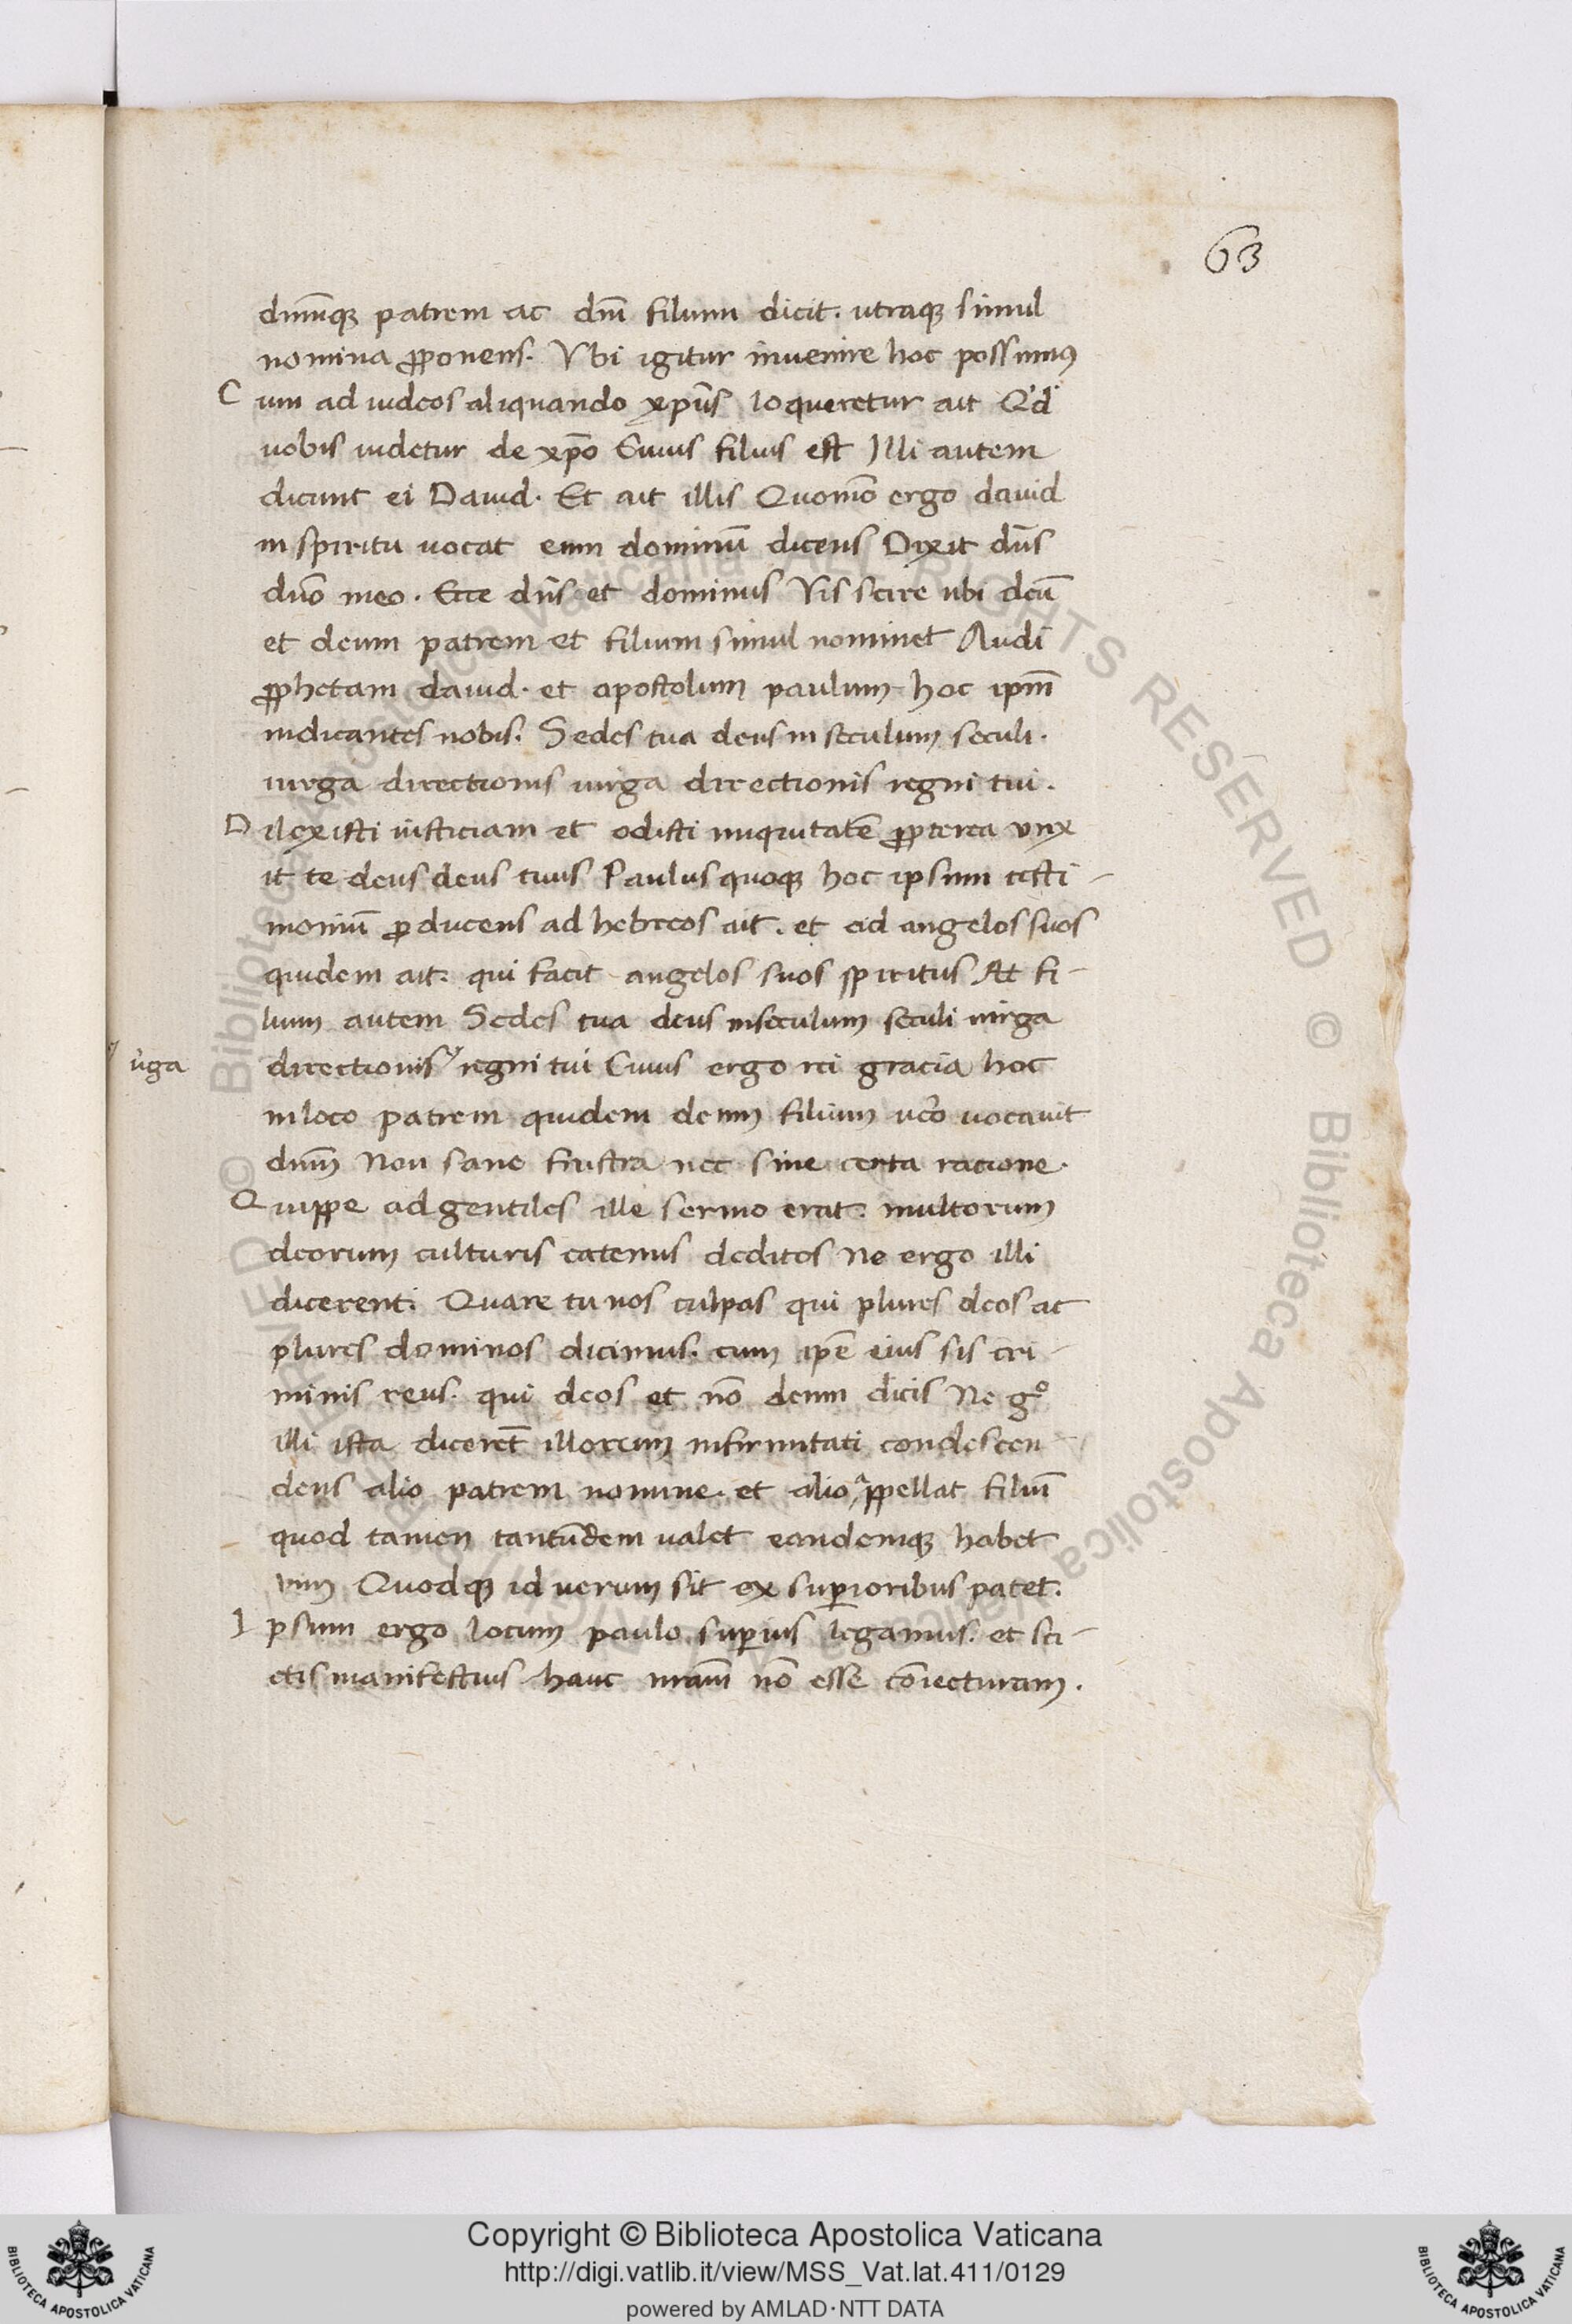 63
dnmq̃ patrem ac dnm̄ filium dicit. utraq̃ simul
nomina p̱ponens. Vbi igitur inuenire hoc possimus
Cum ad iudeos aliquando xp̄us loqueretur ait Q'd
uobis uidetur de xp̄o Cuius filius est Illi autem
dicunt ei Dauid. Et ait illis Quomō ergo dauid
in spiritu uocat eum dominū dicens Dixit dn̄s
dn̄o meo. Ecce dn̄s et dominus Vis scire ubi deū
et deum patrem et filium simul nominet Audi
p̱phetam dauid. et apostolum paulum hoc ipm̄
indicantes nobis. Sedes tua deus in seculum seculi.
uirga directionis uirga directionis regni tui.
Dilexisti iusticiam et odisti iniquitatē p̱pterea vnx
it te deus deus tuus Paulus quoq̃ hoc ipsum testi-
moniū p̱ducens ad hebreos ait. et ad angelos suos
quidem ait. qui facit angelos suos spiritus At fi-
lium autem Sedes tua deus in seculum seculi uirga
u̇ga
directionis regni tui Cuius ergo rei gracia hoc
in loco patrem quidem deum filium uero uocauit
dnm̄ Non sane frustra nec sine certa racione.
Quippe ad gentiles ille sermo erat. multorum
deorum culturis catenus deditos Ne ergo illi
dicerent. Quare tu nos culpas qui plures deos ac
plures dominos dicimus. cum ipē eius sis cri-
minis reus. qui deos et nō deum dicis Ne gº
illi ista dicerēt illorum infirmitati condescen-
dens alio patrem nomine. et alio appellat filiū
quod tamen tantūdem ualet eandemq̃ habet
uim Quodq̃ id uerum sit ex superioribus patet.
Ipsum ergo locum paulo superius legamus. et sci-
etis manifestius hanc nrām nō esse cōiecturam.
Copyright © Biblioteca Apostolica Vaticana
http://digi.vatlib.it/view/MSS_Vat.lat.411/0129
powered by AMLAD·NTT DATA